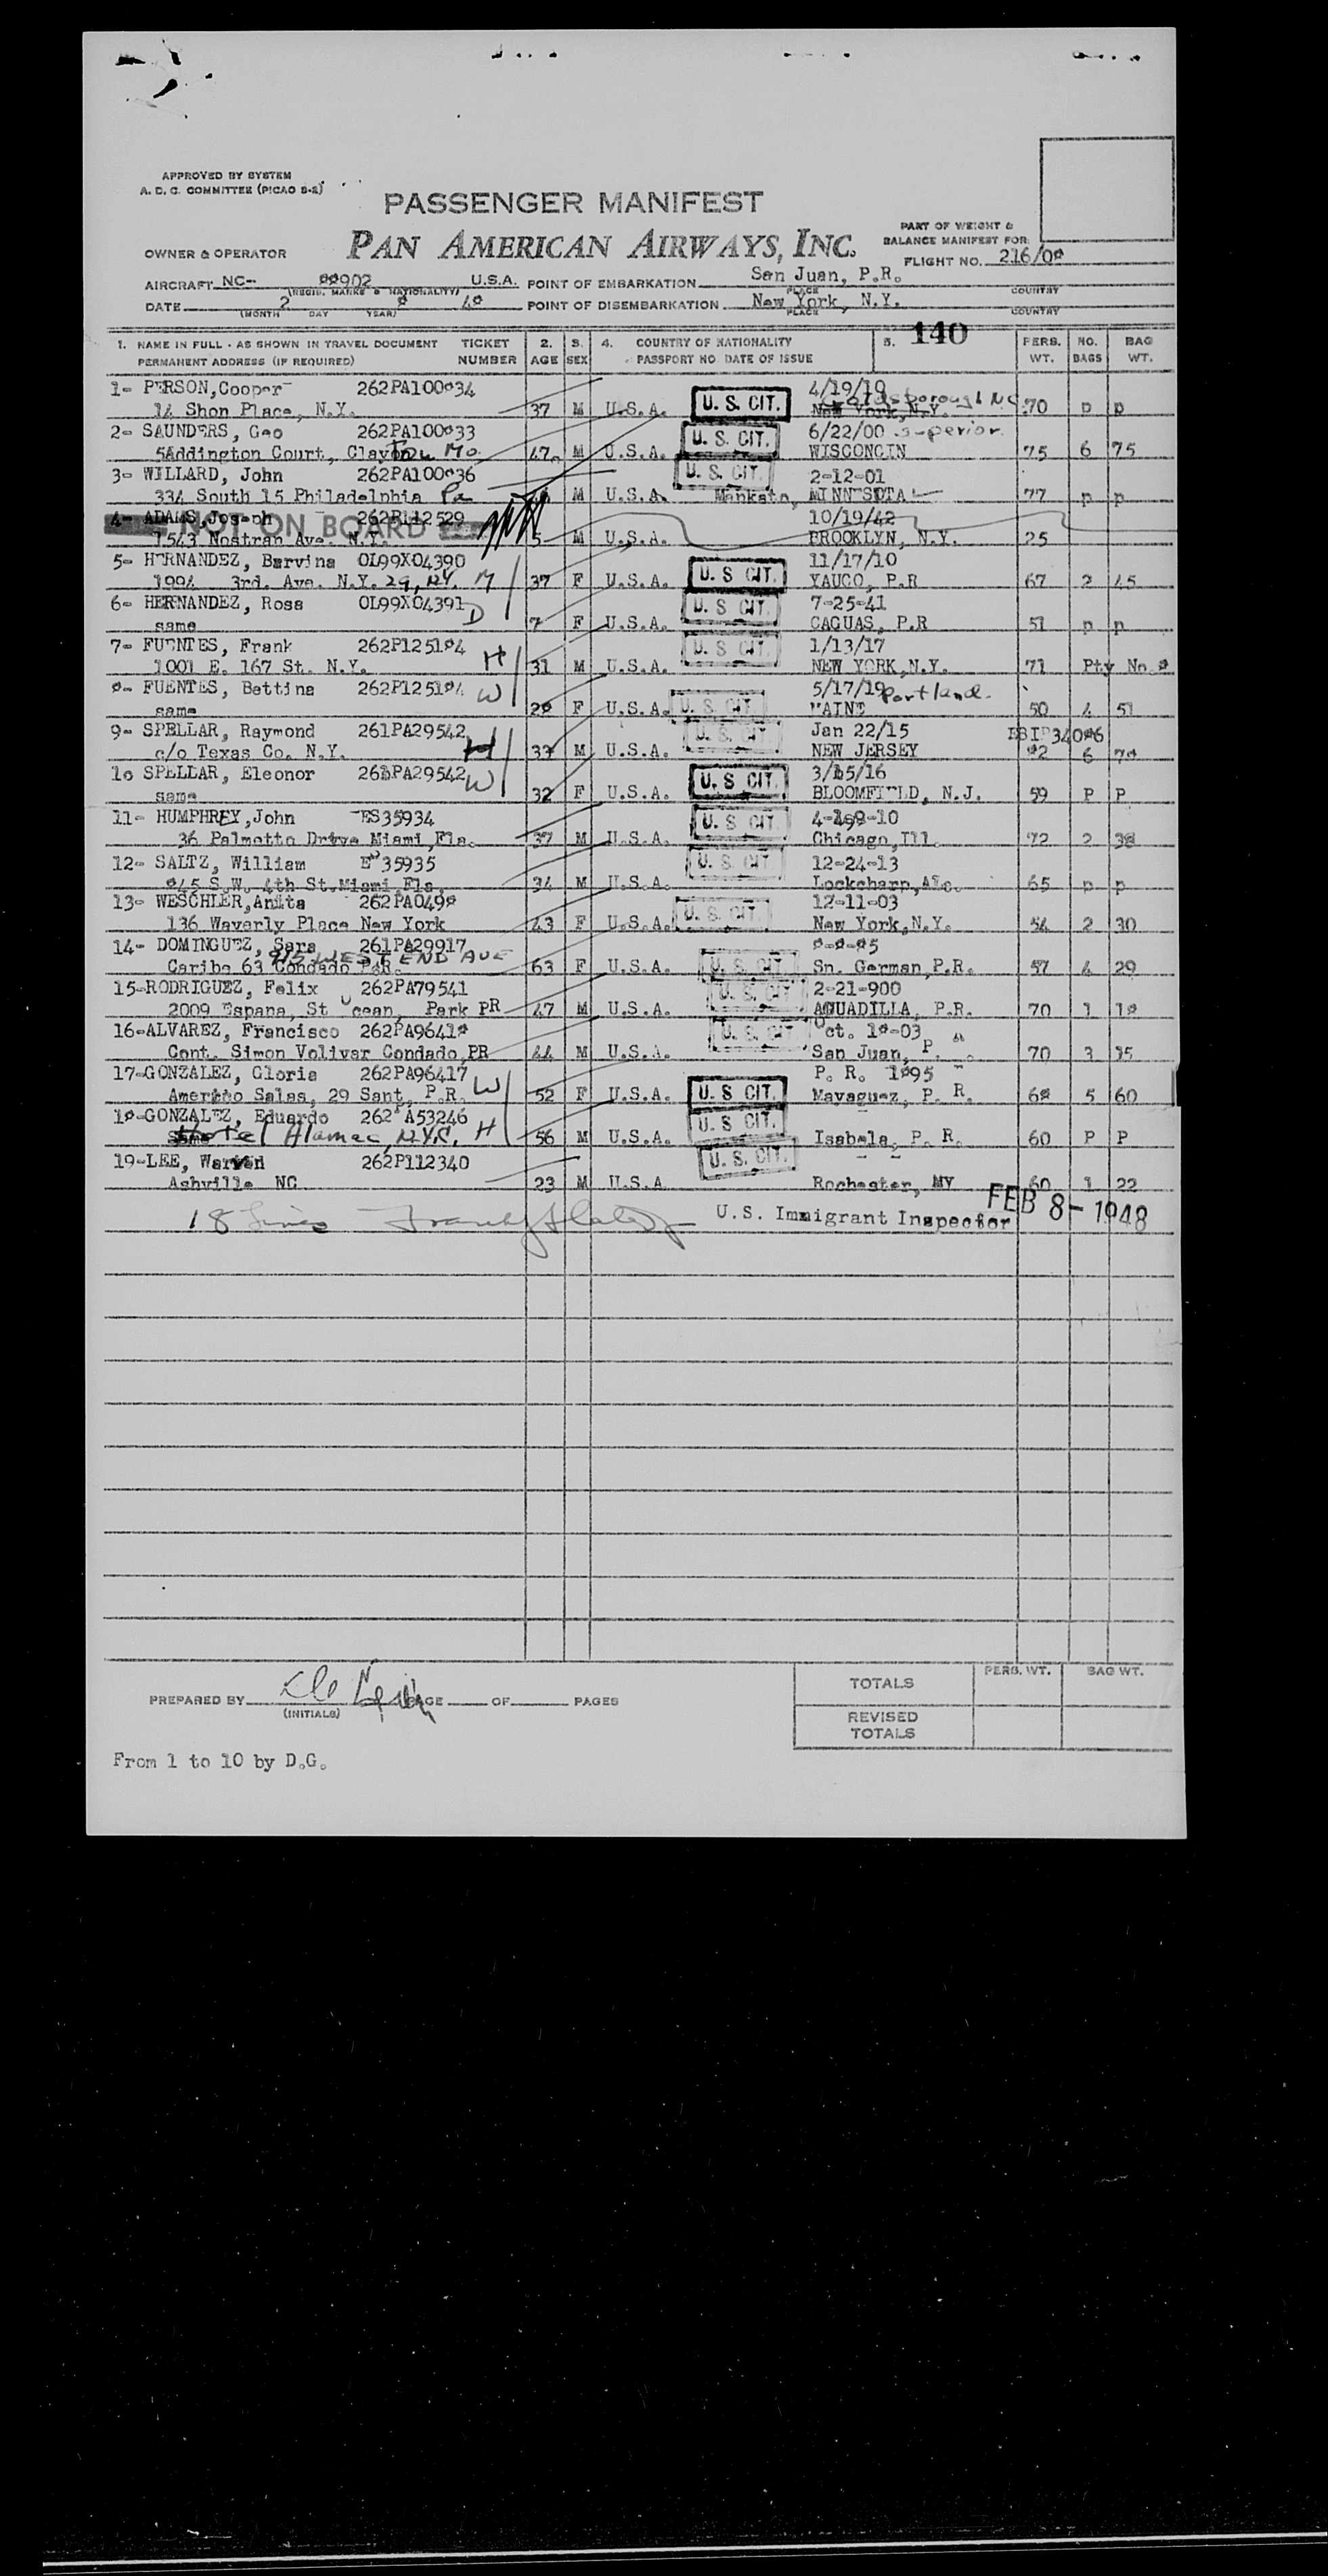 APPROVED BY SYSTEM
A. D. C. COMMITTEE (PICAO S-2)
PASSENGER MANIFEST
PAN AMERICAN AIRWAYS, INC.
PART OF WEIGHT &
BALANCE MANIFEST FOR:
OWNER & OPERATOR
FLIGHT NO. 216/08
AIRCRAFT NC-- 88902 U.S.A. POINT OF EMBARKATION San Juan, P.R.
(REGIS. MARKS & NATIONALITY) PLACE COUNTRY
DATE 2 8 48 POINT OF DISEMBARKATION New York, N.Y.
(MONTH DAY YEAR) PLACE COUNTRY
1. NAME IN FULL - AS SHOWN IN TRAVEL DOCUMENT TICKET 2. 3. 4. COUNTRY OF NATIONALITY 5. 140 PERS. NO. BAG
PERMANENT ADDRESS (IF REQUIRED) NUMBER AGE SEX PASSPORT NO DATE OF ISSUE WT. BAGS WT.
1- PERSON, Cooper 262PA100834 4/19/10
14 Shon Place, N.Y. 37 M U.S.A. U. S. CIT. New York, N.Y. 70 p p
2- SAUNDERS, Geo 262PA100833 6/22/00 Superior
5Addington Court, Clayton Mo. 47 M U.S.A. U. S. CIT. WISCONCIN 75 6 75
3- WILLARD, John 262PA100836 2-12-01
334 South 15 Philadelphia Pa M U.S.A. U. S. CIT. Mankato, MINNESOTA 77 p p
4- ADAMS, Joseph 262P112529 10/19/42
NOT ON BOARD
1543 Nostran Ave. N.Y. 5 M U.S.A. BROOKLYN, N.Y. 25
5- HERNANDEZ, Barvina OL99X04390 11/17/10
1994 3rd. Ave. N.Y. 29, N.Y. M 37 F U.S.A. U. S CIT. YAUCO, P.R 67 2 45
6- HERNANDEZ, Rosa OL99X04391 D 7-25-41
same 7 F U.S.A. U. S CIT. CAGUAS, P.R 51 p p
7- FUENTES, Frank 262P125184 1/13/17
1001 E. 167 St. N.Y. H 31 M U.S.A. U. S CIT. NEW YORK, N.Y. 71 Pty No. 8
8- FUENTES, Bettina 262P125184 W 5/17/19 Portland.
same 28 F U.S.A. U. S. CIT MAINE 50 4 51
9- SPELLAR, Raymond 261PA29542 Jan 22/15
c/o Texas Co. N.Y. H 33 M U.S.A. U. S. CIT. NEW JERSEY 82 6 78
10 SPELLAR, Eleonor 261PA29542 W 3/15/16
same 32 F U.S.A. U. S CIT. BLOOMFIELD, N.J. 59 P P
11- HUMPHREY, John ES35934
36 Palmetto Drive Miami, Fla. 37 M U.S.A. U. S CIT. Chicago, Ill. 72 2 38
12- SALTZ, William ES35935 12-24-13
845 S.W. 4th St. Miami, Fla. 34 M U.S.A. U. S CIT. 65 p p
13- WESCHLER, Anita 262PA0498 12-11-03
136 Waverly Place New York 43 F U.S.A. U. S. CIT. New York, N.Y. 54 2 30
14- DOMINGUEZ, Sara 261PA29917 8-8-85
915 WEST END AVE
Caribe 63 Condado P.R. 63 F U.S.A. U. S. CIT Sn. German, P.R. 57 4 29
15-RODRIGUEZ, Felix 262PA79541 2-21-900
2009 Espana, St Ocean, Park PR 47 M U.S.A. U. S. CIT AGUADILLA, P.R. 70 1 18
16-ALVAREZ, Francisco 262PA96418 Oct. 18-03
Cont. Simon Volivar Condado, PR 44 M U.S.A. U. S. CIT San Juan, P. 70 3 35
17-GONZALEZ, Gloria 262PA96417 W P. R. 1895
Americo Salas, 29 Sant, P.R. 52 F U.S.A. U. S CIT. Mayaguez, P. R. 68 5 60
18-GONZALEZ, Eduardo 262PA53246
Hotel Alamac, N.Y.C. H 56 M U.S.A. U. S CIT. Isabela, P. R. 60 P P
19-LEE, Warren 262P112340
Ashville NC 23 M U.S.A U. S. CIT. Rochester, NY 60 1 22
18 Lines U.S. Immigrant Inspector FEB 8- 1948
PREPARED BY PAGE OF PAGES
(INITIALS)
TOTALS PERS. WT. BAG WT.
REVISED
TOTALS
From 1 to 10 by D.G.